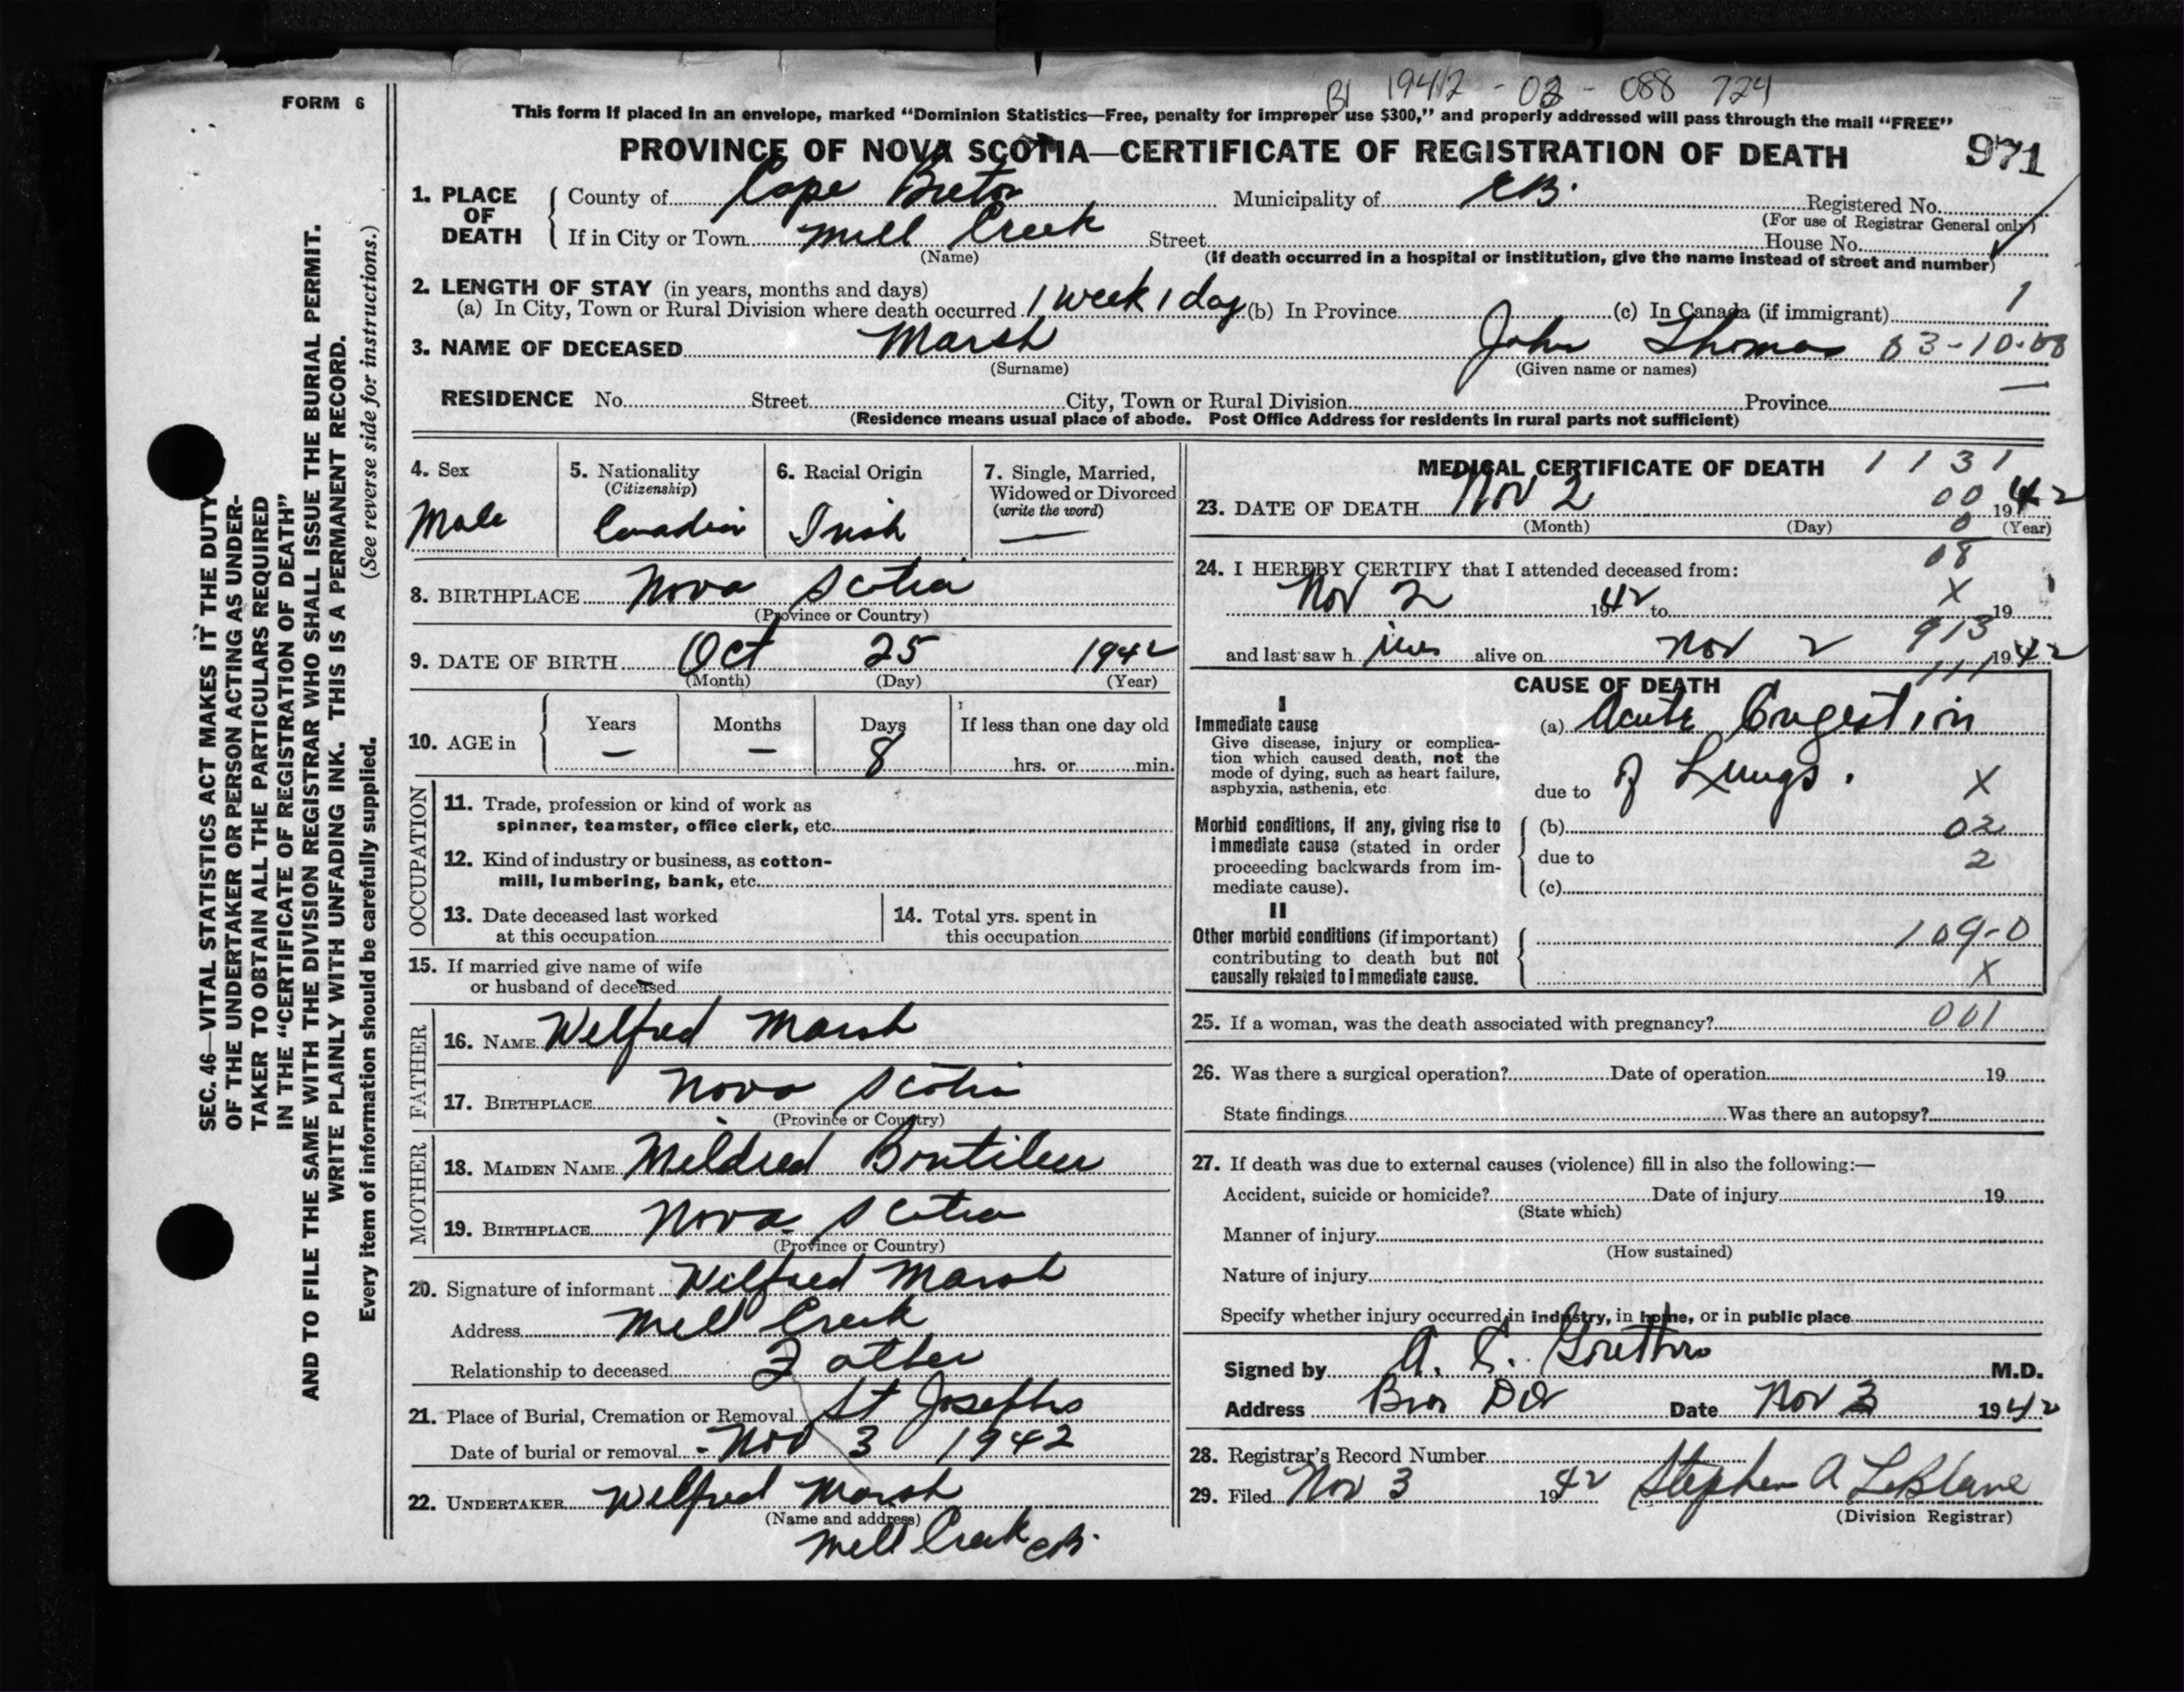 B1 1942 - 02 - 088 724
FORM 6
This form if placed in an envelope, marked "Dominion Statistics—Free, penalty for improper use $300," and properly addressed will pass through the mail "FREE"
PROVINCE OF NOVA SCOTIA—CERTIFICATE OF REGISTRATION OF DEATH 971
1. PLACE OF DEATH
County of Cape Breton Municipality of C.B. Registered No.
(For use of Registrar General only)
If in City or Town Mill Creek Street House No.
(Name) (If death occurred in a hospital or institution, give the name instead of street and number)
2. LENGTH OF STAY (in years, months and days)
(a) In City, Town or Rural Division where death occurred 1 week 1 day (b) In Province (c) In Canada (if immigrant) 1
3. NAME OF DECEASED Marsh John Thomas 03-10-00
(Surname) (Given name or names)
RESIDENCE No. Street City, Town or Rural Division Province —
(Residence means usual place of abode. Post Office Address for residents in rural parts not sufficient)
4. Sex
Male
5. Nationality
(Citizenship)
Canadian
6. Racial Origin
Irish
7. Single, Married,
Widowed or Divorced
(write the word)
—
8. BIRTHPLACE Nova Scotia
(Province or Country)
9. DATE OF BIRTH Oct 25 1942
(Month) (Day) (Year)
10. AGE in
Years Months Days If less than one day old
— — 8 hrs. or min.
OCCUPATION
11. Trade, profession or kind of work as
spinner, teamster, office clerk, etc.
12. Kind of industry or business, as cotton-
mill, lumbering, bank, etc.
13. Date deceased last worked
at this occupation
14. Total yrs. spent in
this occupation
15. If married give name of wife
or husband of deceased
FATHER
16. NAME Welfred Marsh
17. BIRTHPLACE Nova Scotia
(Province or Country)
MOTHER
18. MAIDEN NAME Mildred Boutilier
19. BIRTHPLACE Nova Scotia
(Province or Country)
20. Signature of informant Wilfred Marsh
Address Mill Creek
Relationship to deceased Father
21. Place of Burial, Cremation or Removal St Josephs
Date of burial or removal - Nov 3 1942
22. UNDERTAKER Welfred Marsh
(Name and address)
Mill Creek C.B.
MEDICAL CERTIFICATE OF DEATH 1 1 3 1
23. DATE OF DEATH Nov 2 00 1942
(Month) (Day) 0 (Year)
24. I HEREBY CERTIFY that I attended deceased from: 08
Nov 2 1942 to X 19
and last saw h im alive on Nov 2 913 1942
111
CAUSE OF DEATH
I
Immediate cause
Give disease, injury or complica-
tion which caused death, not the
mode of dying, such as heart failure,
asphyxia, asthenia, etc
(a) Acute Congestion
due to of Lungs. X
Morbid conditions, if any, giving rise to
immediate cause (stated in order
proceeding backwards from im-
mediate cause).
(b) 02
due to 2
(c)
II
Other morbid conditions (if important)
contributing to death but not
causally related to immediate cause.
109-0
X
25. If a woman, was the death associated with pregnancy? 001
26. Was there a surgical operation? Date of operation 19
State findings Was there an autopsy?
27. If death was due to external causes (violence) fill in also the following:—
Accident, suicide or homicide? Date of injury 19
(State which)
Manner of injury
(How sustained)
Nature of injury
Specify whether injury occurred in industry, in home, or in public place
Signed by A. C. M.D.
Address Date Nov 3 1942
28. Registrar's Record Number
29. Filed Nov 3 1942 Stephen A LeBlanc
(Division Registrar)
SEC. 46—VITAL STATISTICS ACT MAKES IT THE DUTY
OF THE UNDERTAKER OR PERSON ACTING AS UNDER-
TAKER TO OBTAIN ALL THE PARTICULARS REQUIRED
IN THE "CERTIFICATE OF REGISTRATION OF DEATH"
AND TO FILE THE SAME WITH THE DIVISION REGISTRAR WHO SHALL ISSUE THE BURIAL PERMIT.
WRITE PLAINLY WITH UNFADING INK. THIS IS A PERMANENT RECORD.
Every item of information should be carefully supplied. (See reverse side for instructions.)